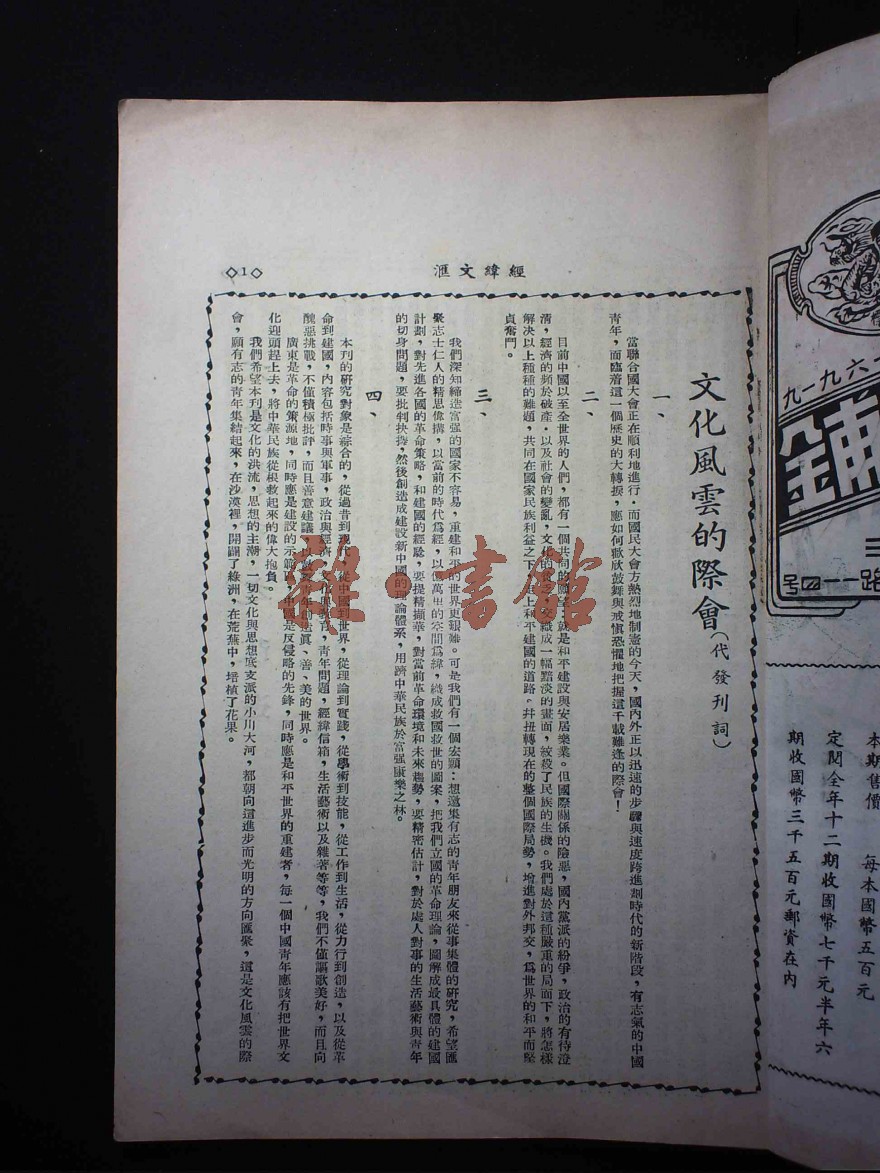 經緯文滙
◇1◇
文化風雲的際會(代發刊詞)
一、
當聯合國大會正在順利地進行，而國民大會方熱烈地制憲的今天，國內外正以迅速的步驟與速度跨進劃時代的新階段，有志氣的中國
青年，面臨着這一個歷史的大轉捩，應如何歡欣鼓舞與戒愼恐懼地把握這千載難逢的際會！
二、
目前中國以至全世界的人們，都有一個共同的願望：就是和平建設與安居樂業。但國際關係的險惡，國內黨派的紛爭，政治的有待澄
淸，經濟的頻於破產，以及社會的變亂，文化的貧乏，交織成一幅黯淡的畫面，絞殺了民族的生機。我們處於這種嚴重的局面下，將怎樣
解决以上種種的難題，共同在國家民族利益之下，走上和平建國的道路。幷扭轉現在的整個國際局勢，增進對外邦交，爲世界的和平而堅
貞奮鬥。
三、
我們深知締造富强的國家不容易，重建和平的世界更艱難。可是我們有一個宏願：想邀集有志的青年朋友來從事集體的研究，希望匯
聚志士仁人的精思偉搆，以當前的時代爲經，以億萬里的空間爲緯，織成救國救世的圖案，把我們立國的革命理論，圖解成最具體的建國
計劃，對先進各國的革命策略，和建國的經驗，要提精擷華，對當前革命環境和未來趨勢，要精密估計，對於處人對事的生活藝術與青年
的切身問題，要批判抉擇，然後創造成建設新中國的理論體系，用躋中華民族於富强康樂之林。
四、
本刊的研究對象是綜合的，從過昔到現代，從中國到世界，從理論到實踐，從學術到技能，從工作到生活，從力行到創造，以及從革
命到建國，內容包括時事與軍事，政治與經濟，文化與教育，青年問題，經緯信箱，生活藝術以及雜著等等，我們不僅謳歌美好，而且向
醜惡挑戰，不僅積極批評，而且善意建議，以啟發青年創造眞、善、美的世界。
廣東是革命的策源地，同時應是建設的示範區，中國是反侵略的先鋒，同時應是和平世界的重建者，每一個中國青年應該有把世界文
化迎頭趕上去，將中華民族從根救起來的偉大抱負。
我們希望本刊是文化的洪流，思想的主潮，一切文化與思想底支派的小川大河，都朝向這進步而光明的方向匯聚，這是文化風雲的際
會，願有志的青年集結起來，在沙漠裡，開闢了綠洲，在荒蕪中，培植了花果。
雜·書館
九一九六二
舖
號四一一路
本期售價　每本國幣五百元
定閱全年十二期收國幣七千元半年六
期收國幣三千五百元郵資在內